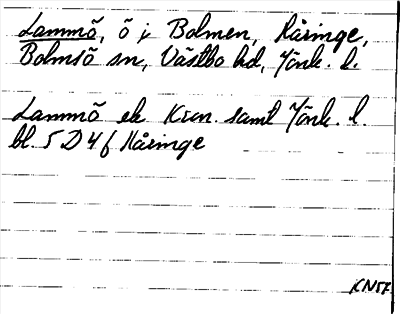 Lammö, ö i Bolmen, Håringe,
Bolmsö sn, Västbo hd, Jönk. l.
Lammö ek Kron. samt Jönk. l.
bl. 5 D 4 f Håringe
KN57